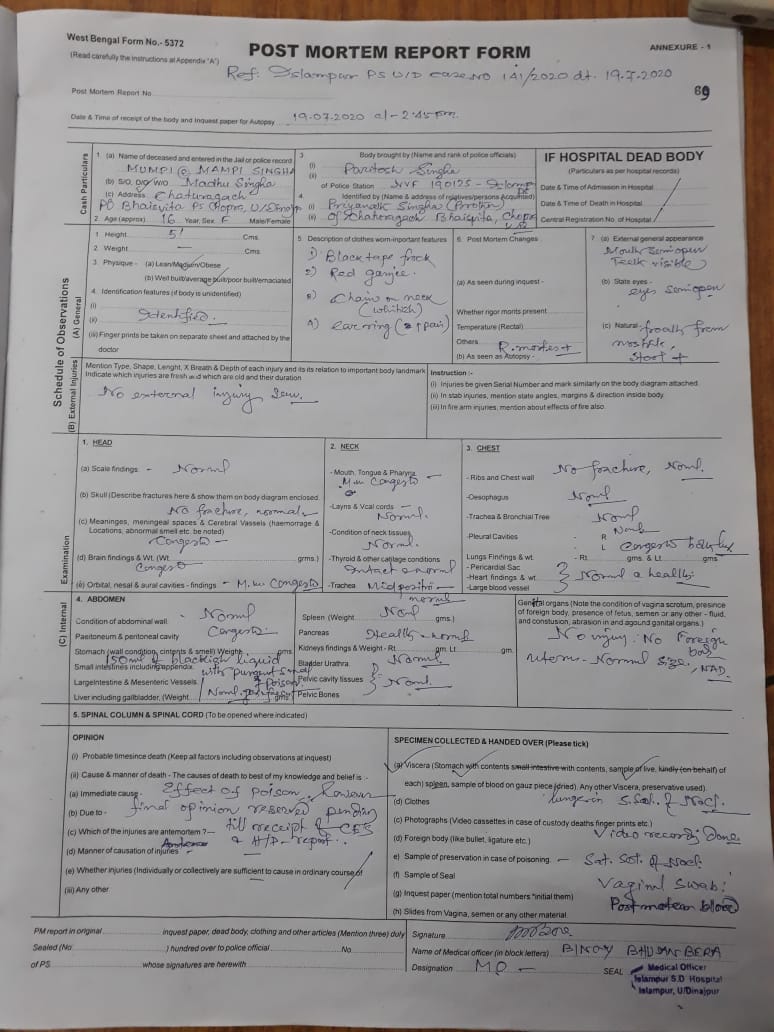 West Bengal Form No.- 5372
(Read carefully the Instructions at Appendix 'A')
POST MORTEM REPORT FORM
ANNEXURE - 1
Ref: Islampur PS U/D case NO 141/2020 dt. 19-7-2020
Post Mortem Report No
69
Date & Time of receipt of the body and Inquest paper for Autopsy 19-07-2020 at - 2:45 pm.
Cash Particulars
1 (a) Name of deceased and entered in the Jail or police record
MUMPI @ MAMPI SINGHA
(b) S/O, D/O W/O Madhu Singha
(c) Address Chaturagach
PO Bhaispita PS Chopra, U/Dinajp
2. Age (approx) 16 Year, Sex F Male/Female
3 Body brought by (Name and rank of police officials)
(i) Paritosh Singha
(ii)
of Police Station NVF 190125 - Islampur PS
4. Identified by (Name & address of relatives/persons Acquainted)
(i) Priyanath Singha (Brother)
(ii) Of Chaturagach Bhaispita, Chopra
IF HOSPITAL DEAD BODY
(Particulars as per hospital records)
Date & Time of Admission in Hospital
Date & Time of Death in Hospital
Central Registration No. of Hospital
Schedule of Observations
(A) General
1 Height 5' Cms.
2 Weight — Cms.
3. Physique - (a) Lean/Medium/Obese
(b) Well built/average built/poor built/emaciated
4. Identification features (if body is unidentified)
(i)
(ii) Identified.
(iii) Finger prints be taken on separate sheet and attached by the
doctor
5 Description of clothes worn-important features
1) Black tape frock
2) Red ganjee.
3) Chain on neck
(whitish)
4) ear ring (2 pair)
6. Post Mortem Changes
(a) As seen during inquest -
Whether rigor monts present
Temperature (Rectal)
Others R. mortes +
(b) As seen as Autopsy -
7 (a) External general appearance
Mouth semiopen
Teeth visible
(b) State eyes -
eyes semiopen
(c) Natural froath from
nostrils,
stool +
(B) External Injuries
Mention Type, Shape, Lenght, X Breath & Depth of each injury and its its relation to important body landmark
Indicate which injuries are fresh and which are old and their duration
No external injury seen.
Instruction :-
(i) Injuries be given Serial Number and mark similarly on the body diagram attached
(ii) In stab injuries, mention state angles, margins & direction inside body
(iii) In fire arm injuries, mention about effects of fire also
Examination
(C) Internal
1. HEAD
(a) Scale findings - Norml
(b) Skull (Describe fractures here & show them on body diagram enclosed
No fracture, normal.
(c) Meaninges, meningeal spaces & Cerebral Vessels (haemorrage &
Locations, abnormal smell etc. be noted)
Congests
(d) Brain findings & Wt. (Wt. grms.)
Congest
(e) Orbital, nesal & aural cavities - findings - M.m Congests
2. NECK
- Mouth, Tongue & Pharynx
M.m Congests
- Layns & Vcal cords -
Normal.
- Condition of neck tissues
Normal.
- Thyroid & other cartilage conditions
Intact & norml
- Trachea Midposition
normal
3. CHEST
- Ribs and Chest wall No fracture, Norml.
- Oesophagus Norml
- Trachea & Bronchial Tree Norml
- Pleural Cavities R Norml
L
Lungs Findings & wt - Rt. gms & Lt gms
Congests
- Pericardial Sac
- Heart findings & wt Normal & healthy
- Large blood vessel
4. ABDOMEN
Condition of abdominal wall Norml
Paeitoneum & peritoneal cavity Congests
Stomach (wall condition, contents & smell) Weight gms
150ml of blackish liquid
with pungent smell
Small intestines including appendix
LargeIntestine & Mesenteric Vessels
Liver including gallbladder, (Weight gms)
Spleen (Weight Norml gms.)
Pancreas Healthy - norml
Kidneys findings & Weight - Rt gm, Lt gm
Bladder Urathra. Normal.
Pelvic cavity tissues
Norml.
Pelvic Bones
General organs (Note the condition of vagina scrotum, presence
of foreign body, presence of fetus, semen or any other - fluid,
and constusion, abrasion in and agound ganital organs.)
No injury. No Foreign
body
uterus - Normal size,
NAD.
5. SPINAL COLUMN & SPINAL CORD (To be opened where indicated)
OPINION
(i) Probable timesince death (Keep all factors including observations at inquest)
(ii) Cause & manner of death - The causes of death to best of my knowledge and belief is -
(a) Immediate cause - Effect of poison, however
(b) Due to - final opinion reserved pending
till receipt of CES
(c) Which of the injuries are antemortem ? -
& H/P report.
(d) Manner of causation of injuries
(e) Whether injuries (Individually or collectively are sufficient to cause in ordinary course of
(iii) Any other
SPECIMEN COLLECTED & HANDED OVER (Please tick)
(a) Viscera (Stomach with contents small intestive with contents, sample of live, kindly (on behalf) of
each) spleen, sample of blood on gauz piece (dried). Any other Viscera, preservative used).
lungs in S. Sol. of Nacl.
(d) Clothes
(c) Photographs (Video cassettes in case of custody deaths finger prints etc.)
Video recording Done
(d) Foreign body (like bullet, ligature etc.)
e) Sample of preservation in case of poisoning. - Sat. Sol. of Nacl.
(f) Sample of Seal
Vaginal Swab.
(g) Inquest paper (mention total numbers *initial them)
Postmortem blood
(h) Slides from Vagina, semen or any other material
PM report in original inquest paper, dead body, clothing and other articles (Mention three) duly
Sealed (No ) hundred over to police official No
of PS whose signatures are herewith
Signature
Name of Medical officer (in block letters) BINOY BHUSAN BERA
Designation MO -
SEAL
Medical Officer
Islampur S.D Hospital
Islampur, U/Dinajpur